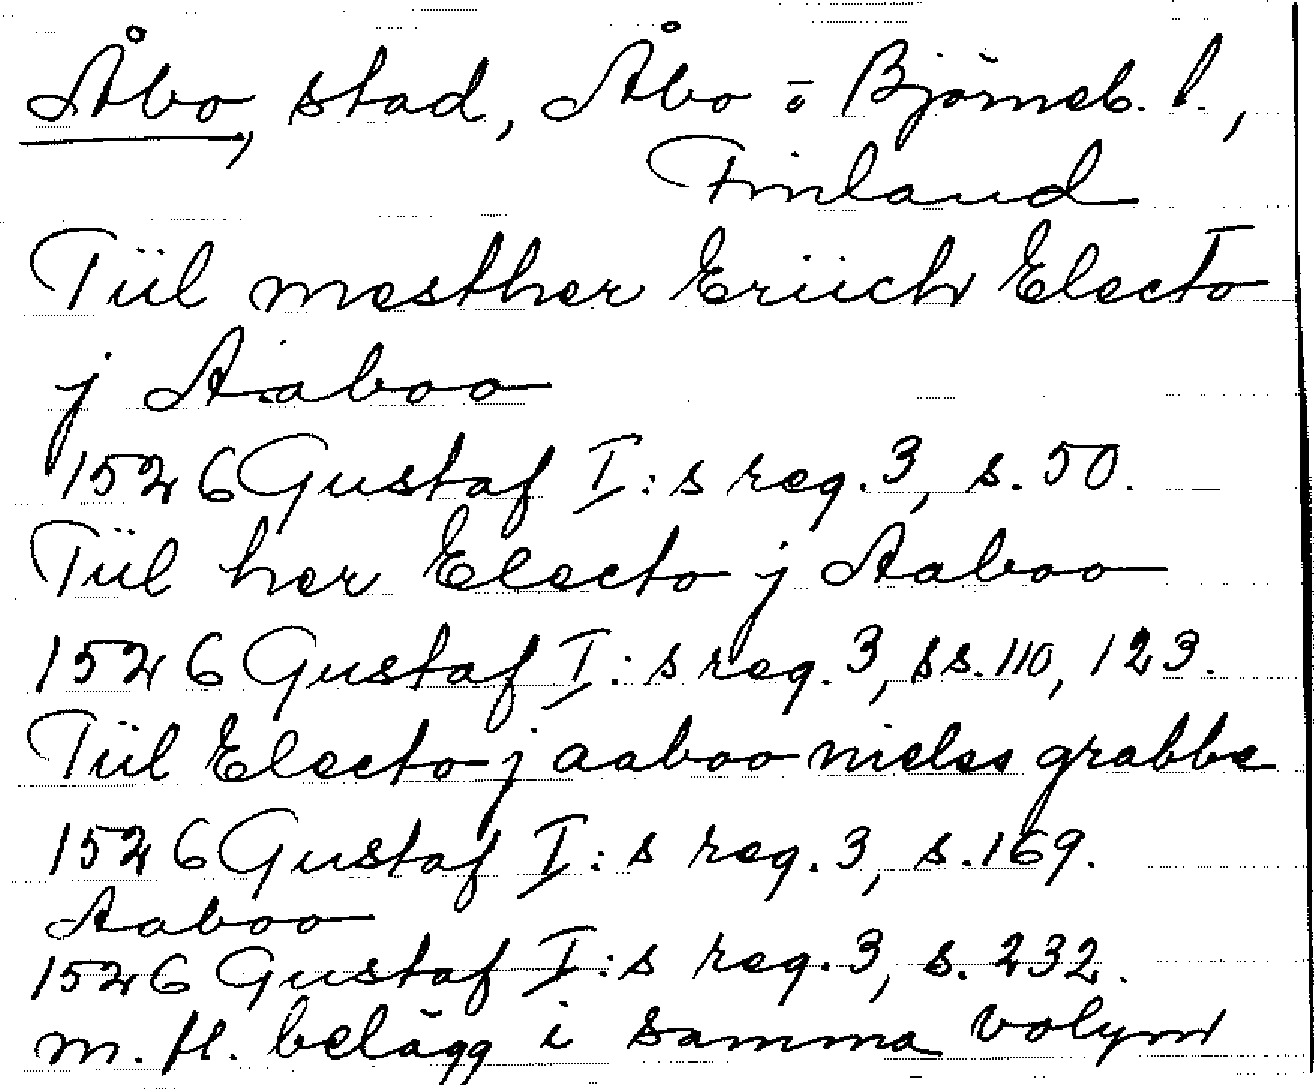 Åbo, stad, Åbo o Björneb. l.,
Finland
Tiil mesther Eriich Electo
j Aaboo
1526 Gustaf I:s reg. 3, s. 50.
Tiil her Electo j Aaboo
1526 Gustaf I:s reg. 3, ss. 110, 123.
Tiil Electo j aaboo nielss grabbe
1526 Gustaf I:s reg. 3, s. 169.
Aaboo
1526 Gustaf I:s reg. 3, s. 232.
m. fl. belägg i samma volym